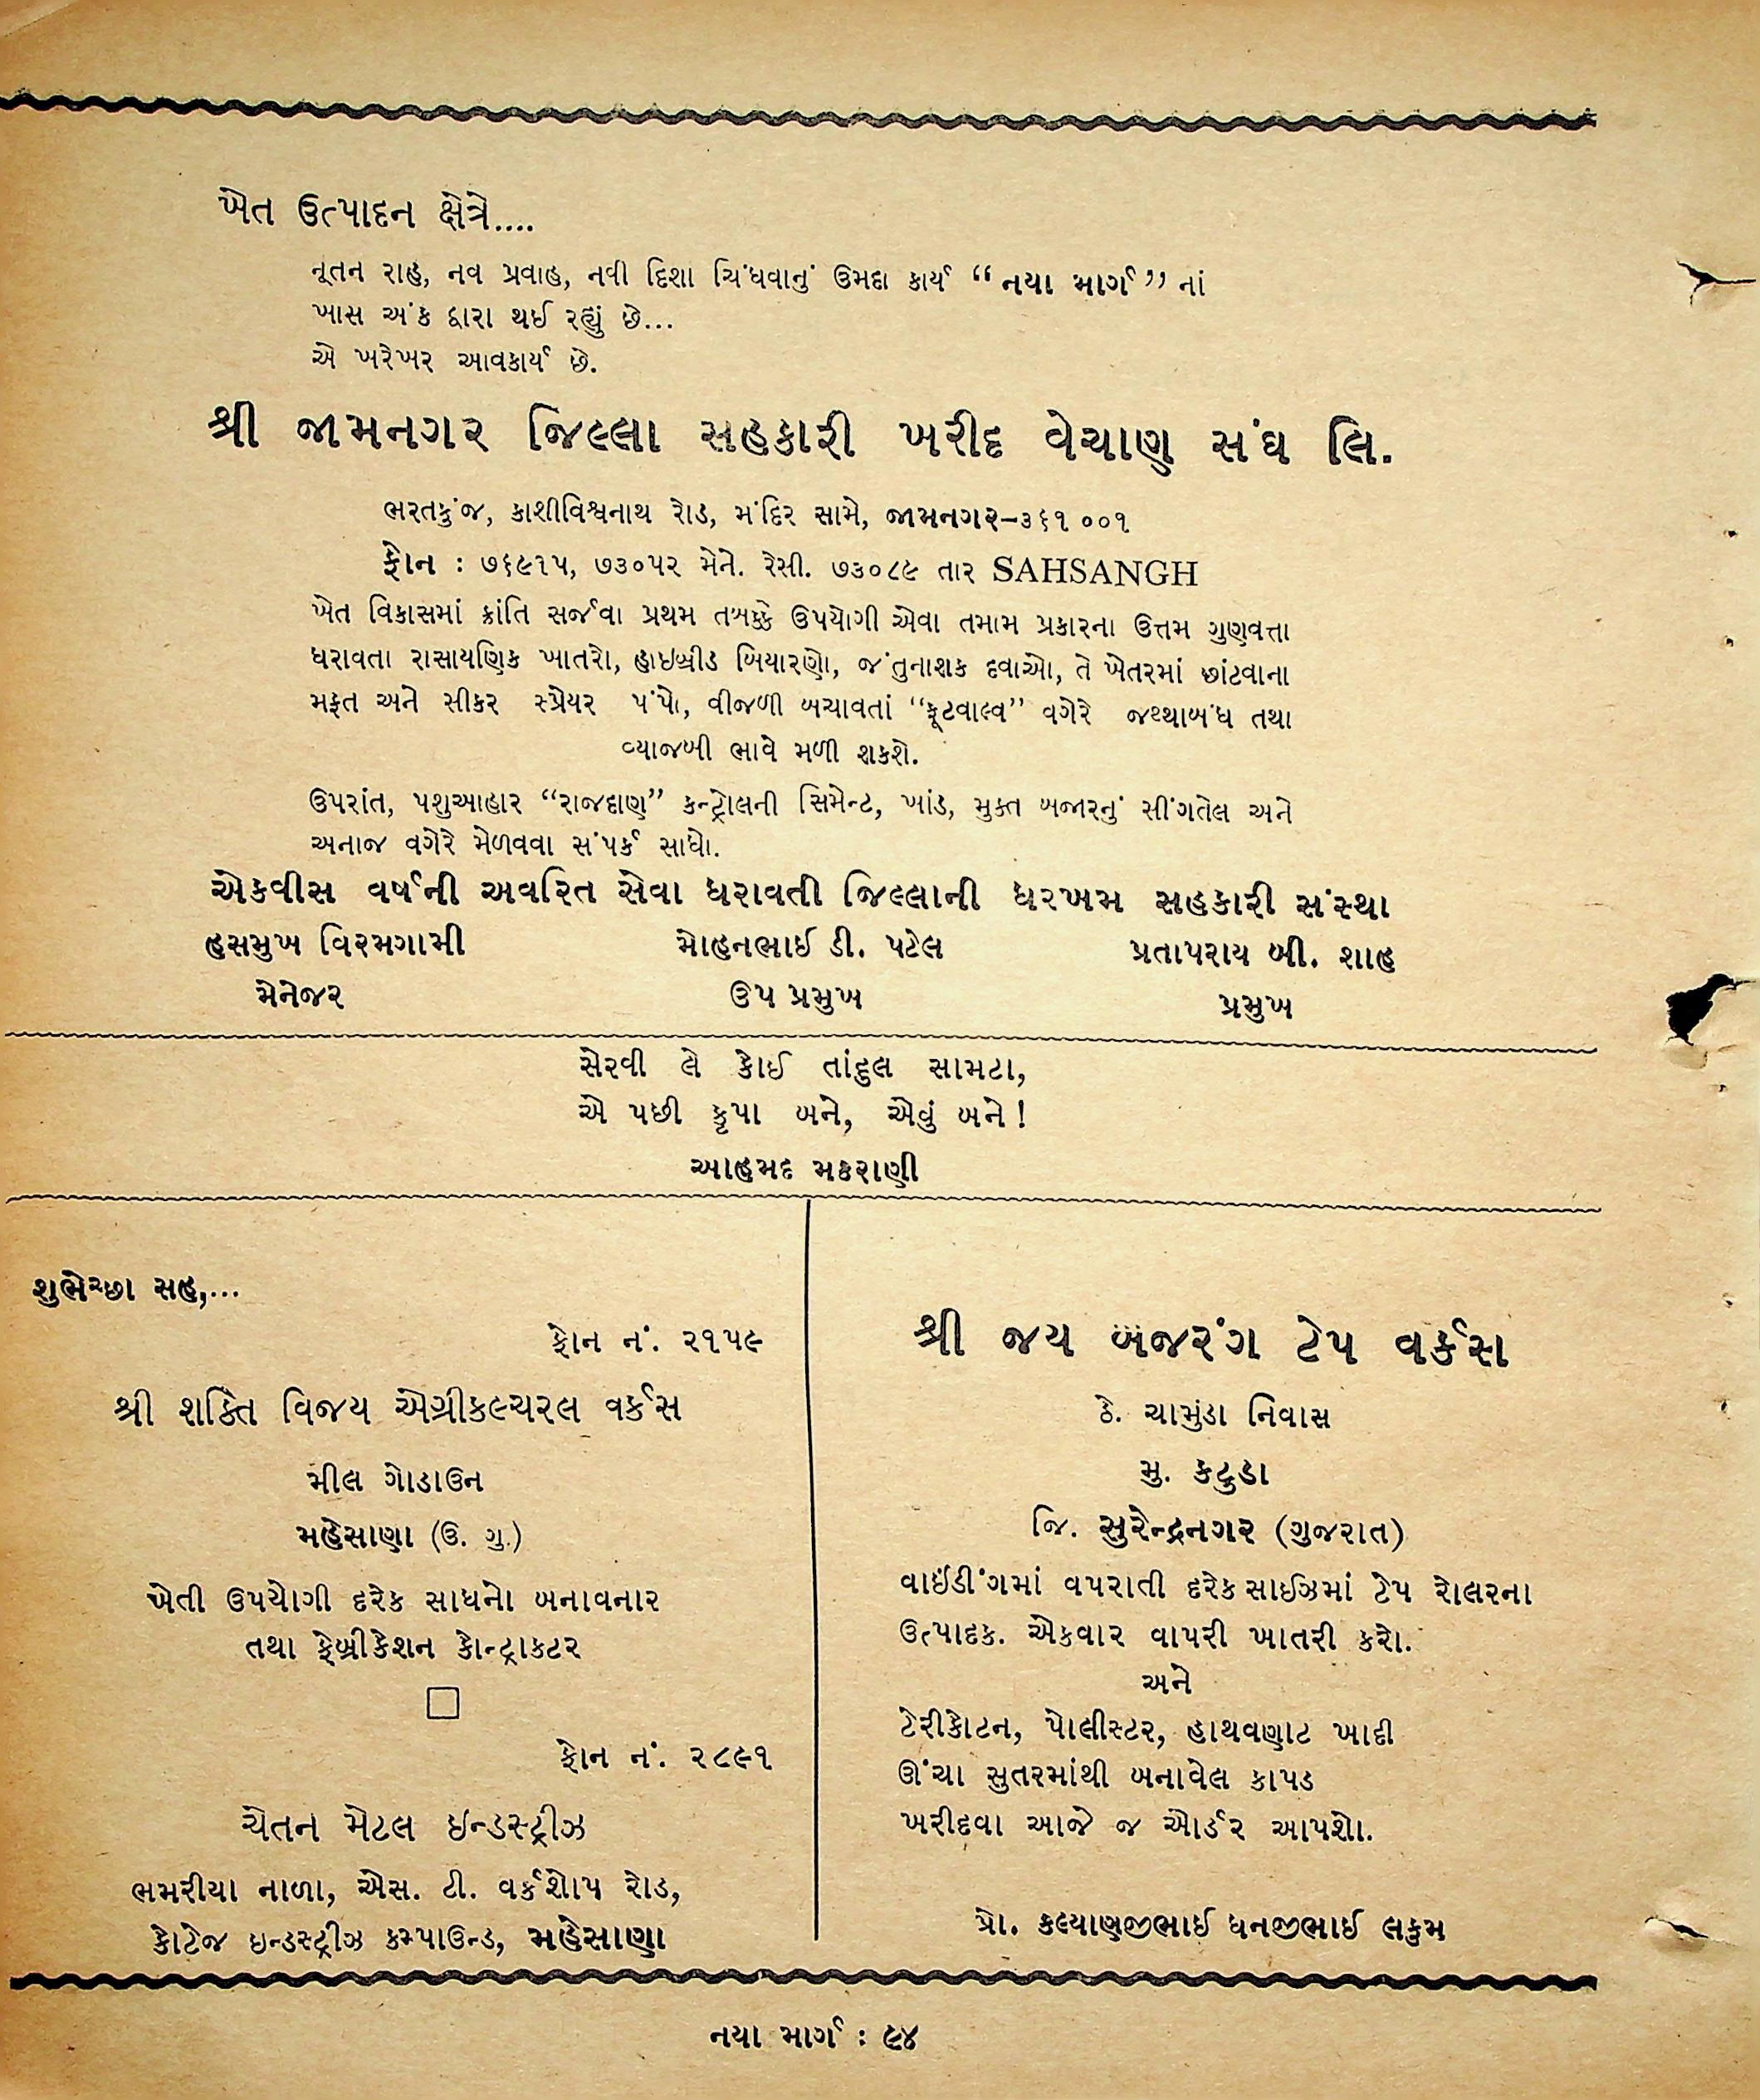 ખેત ઉત્પાદન ક્ષેત્રે....
નૂતન રાહ, નવ પ્રવાહ, નવી દિશા ચિંધવાનું ઉમદા કાર્ય “નયા માર્ગ” નાં
ખાસ અંક દ્વારા થઈ રહ્યું છે...
એ ખરેખર આવકાર્ય છે.
શ્રી જામનગર જિલ્લા સહકારી ખરીદ વેચાણ સંઘ લિ.
ભરતકુંજ, કાશીવિશ્વનાથ રોડ, મંદિર સામે, જામનગર–૩૬૧ ૦૦૧
ફોન : ૭૬૯૧૫, ૭૩૦૫૨ મેને. રેસી. ૭૩૦૮૯ તાર SAHSANGH
ખેત વિકાસમાં ક્રાંતિ સર્જવા પ્રથમ તબક્કે ઉપયોગી એવા તમામ પ્રકારના ઉત્તમ ગુણવત્તા
ધરાવતા રાસાયણિક ખાતરો, હાઇબ્રીડ બિયારણો, જંતુનાશક દવાઓ, તે ખેતરમાં છાંટવાના
મફત અને સીકર સ્પ્રેયર પંપો, વીજળી બચાવતાં “ફૂટવાલ્વ” વગેરે જથ્થાબંધ તથા
વ્યાજબી ભાવે મળી શકશે.
ઉપરાંત, પશુઆહાર “રાજદાણ” કન્ટ્રોલની સિમેન્ટ, ખાંડ, મુક્ત બજારનું સીંગતેલ અને
અનાજ વગેરે મેળવવા સંપર્ક સાધો.
એકવીસ વર્ષની અવરિત સેવા ધરાવતી જિલ્લાની ધરખમ સહકારી સંસ્થા
હસમુખ વિરમગામી મોહનભાઈ ડી. પટેલ પ્રતાપરાય બી. શાહ
મેનેજર ઉપ પ્રમુખ પ્રમુખ
સેરવી લે કોઈ તાંદુલ સામટા,
એ પછી કૃપા બને, એવું બને!
આહમદ મકરાણી
શુભેચ્છા સહ,...
ફોન નં. ૨૧૫૯
શ્રી શક્તિ વિજય એગ્રીકલ્ચરલ વર્કસ
મીલ ગોડાઉન
મહેસાણા (ઉ. ગુ.)
ખેતી ઉપયોગી દરેક સાધનો બનાવનાર
તથા ફેબ્રીકેશન કોન્ટ્રાકટર
ફોન નં. ૨૮૯૧
ચેતન મેટલ ઇન્ડસ્ટ્રીઝ
ભમરીયા નાળા, એસ. ટી. વર્કશોપ રોડ,
કોટેજ ઇન્ડસ્ટ્રીઝ કમ્પાઉન્ડ, મહેસાણા
શ્રી જય બજરંગ ટેપ વર્કસ
ઠે. ચામુંડા નિવાસ
મુ. કટુડા
જિ. સુરેન્દ્રનગર (ગુજરાત)
વાઇંડીંગમાં વપરાતી દરેક સાઈઝમાં ટેપ રોલરના
ઉત્પાદક. એકવાર વાપરી ખાતરી કરો.
અને
ટેરીકોટન, પોલીસ્ટર, હાથવણાટ ખાદી
ઊંચા સુતરમાંથી બનાવેલ કાપડ
ખરીદવા આજે જ ઓર્ડર આપશો.
પ્રો. કલ્યાણજીભાઈ ધનજીભાઈ લકુમ
નયા માર્ગ : ૯૪